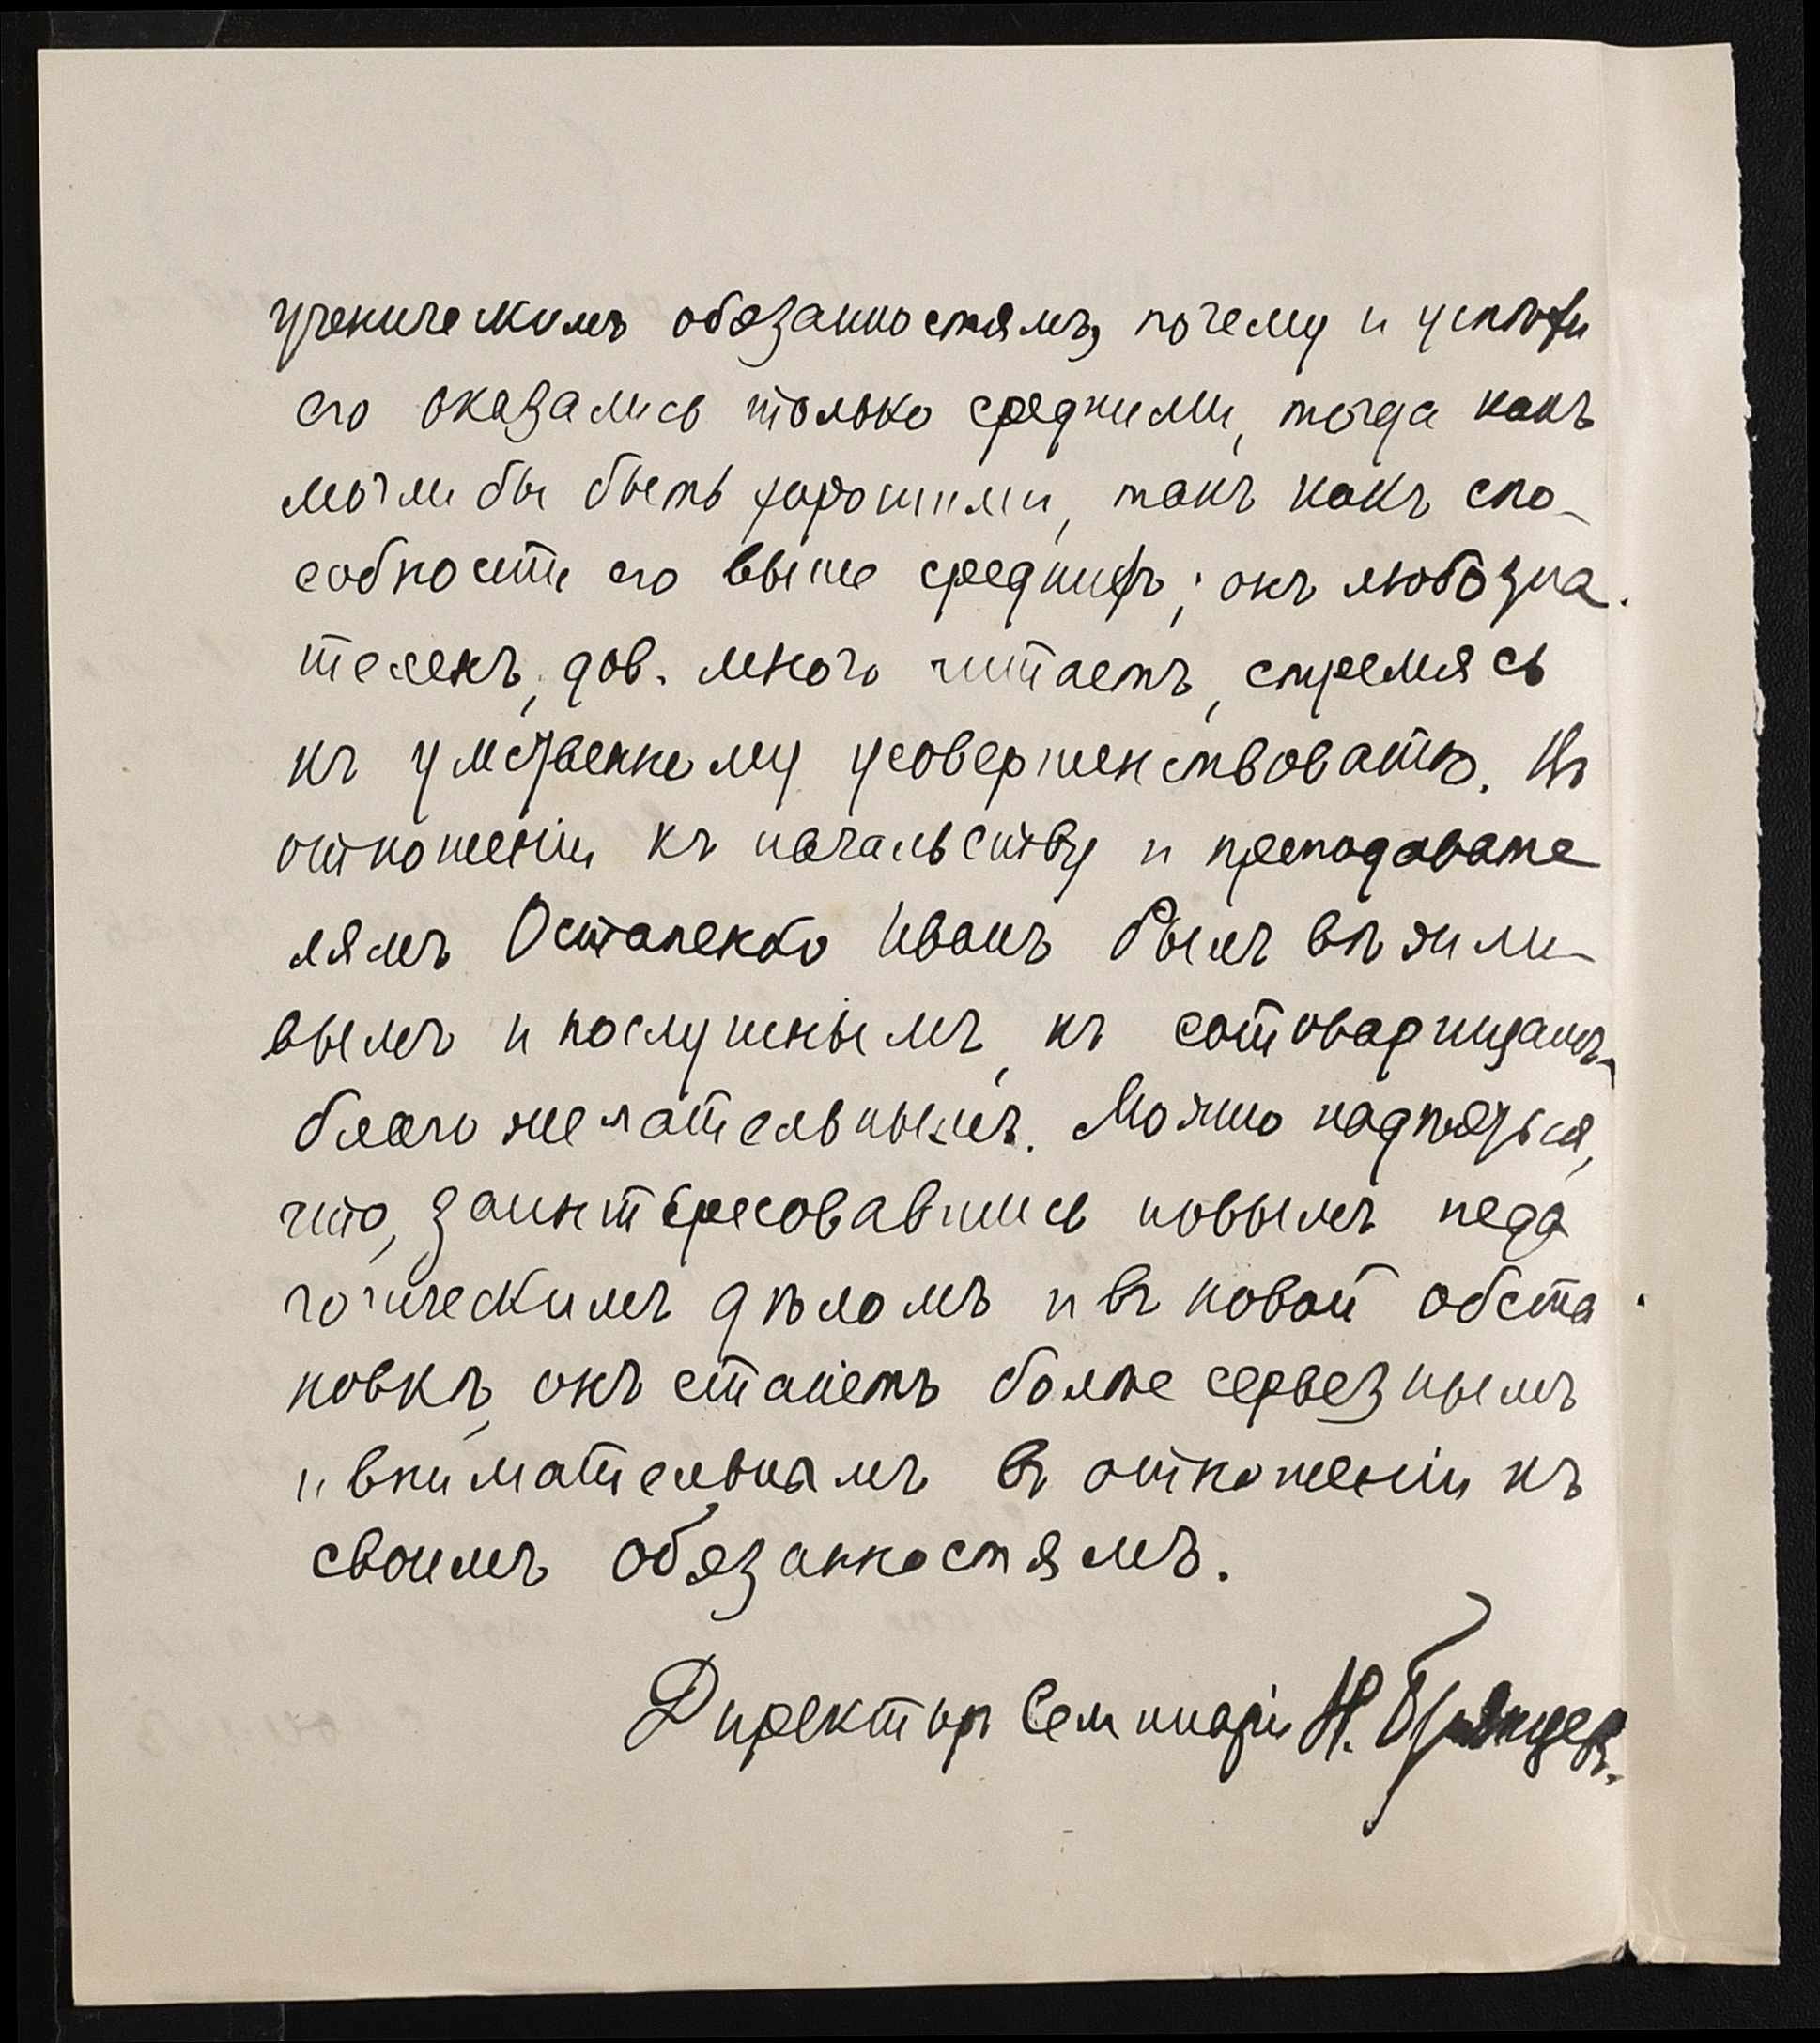 ученическимъ обязанностямъ, почему и успѣхи
его оказались только средними, тогда какъ
могли бы быть хорошими, такъ какъ спо-
собности его выше среднихъ; онъ любозна-
теленъ, дов. много читаетъ, стремясь
къ умственному усовершенствованію. Въ
отношеніи къ начальству и преподавате
лямъ Остапенко Иванъ былъ вѣжли-
вымъ и послушнымъ, къ сотоварищамъ-
благожелательнымъ. Можно надѣяться,
что, заинтересовавшись новымъ педа
гогическимъ дѣломъ и въ новой обста-
новкѣ, онъ станетъ болѣе серьезнымъ
и внимательнымъ въ отношеніи къ
своимъ обязанностямъ.
Директоръ Семинаріи Н. Брянцевъ.